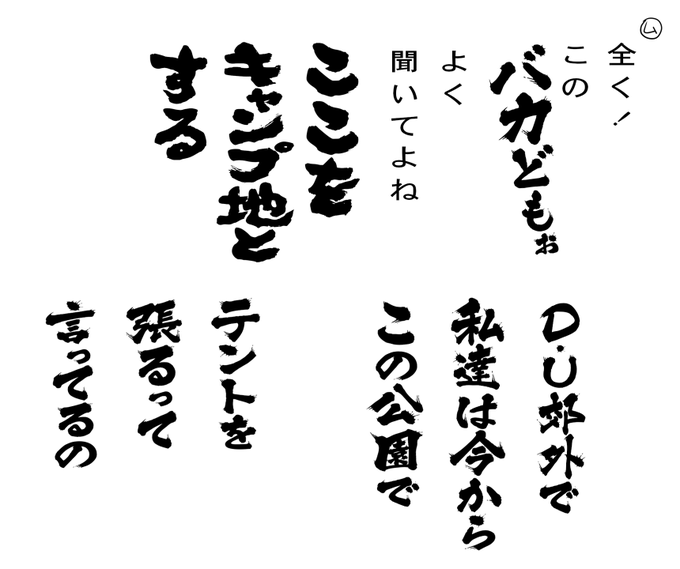 ム
全く!
この
バカどもぉ
よく
聞いてよね
ここを
キャンプ地と
する
D.U郊外で
私達は今から
この公園で
テントを
張るって
言ってるの